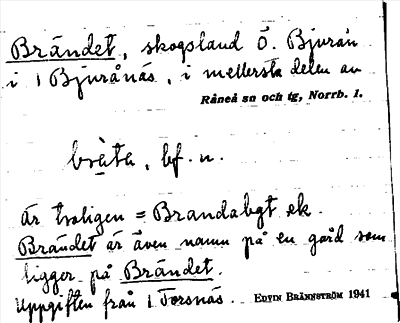 Brändet, skogsland Ö. Bjurån
i 1 Bjurånäs, i mellersta delen av
Råneå sn och tg, Norrb. l.
bràta, bf. n.
är troligen = Brandabgt ek.
Brändet är även namn på en gård som
ligger på Brändet.
Uppgiften från 1 Forsnäs. EDVIN BRÄNNSTRÖM 1941